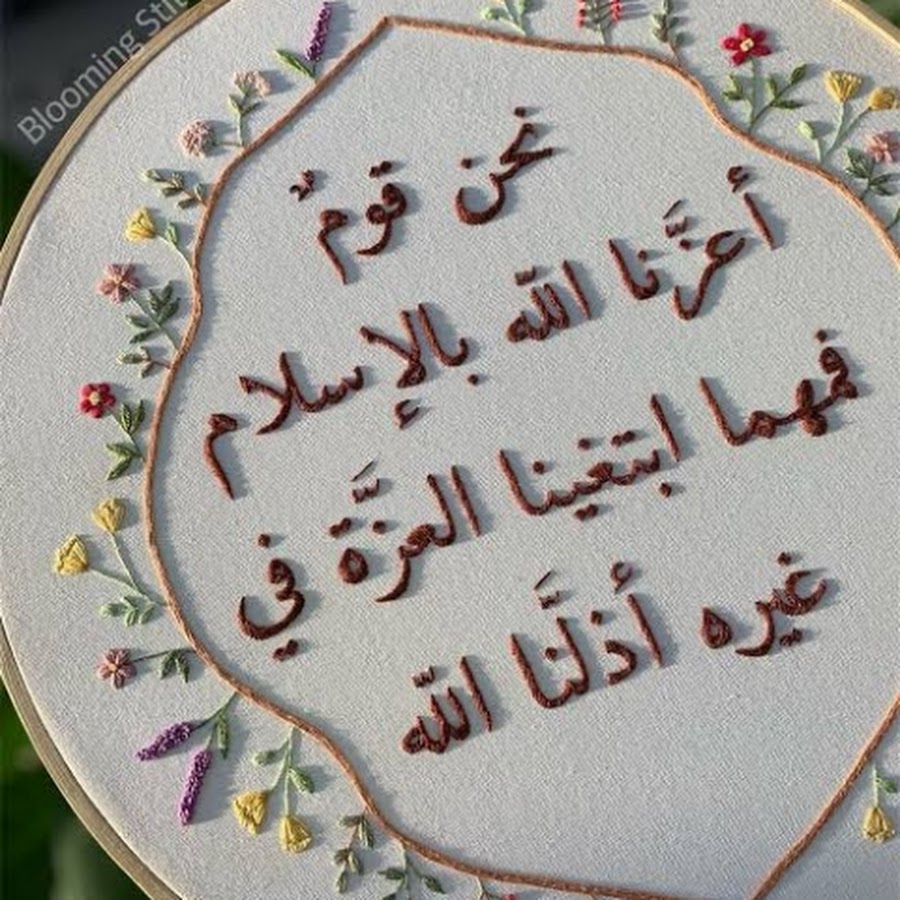 Blooming Stit
نحن قومٌ
أعزَّنا اللّه بالإسلام
فمهما ابتغينا العزَّة في
غيره أذلَّنا اللّه